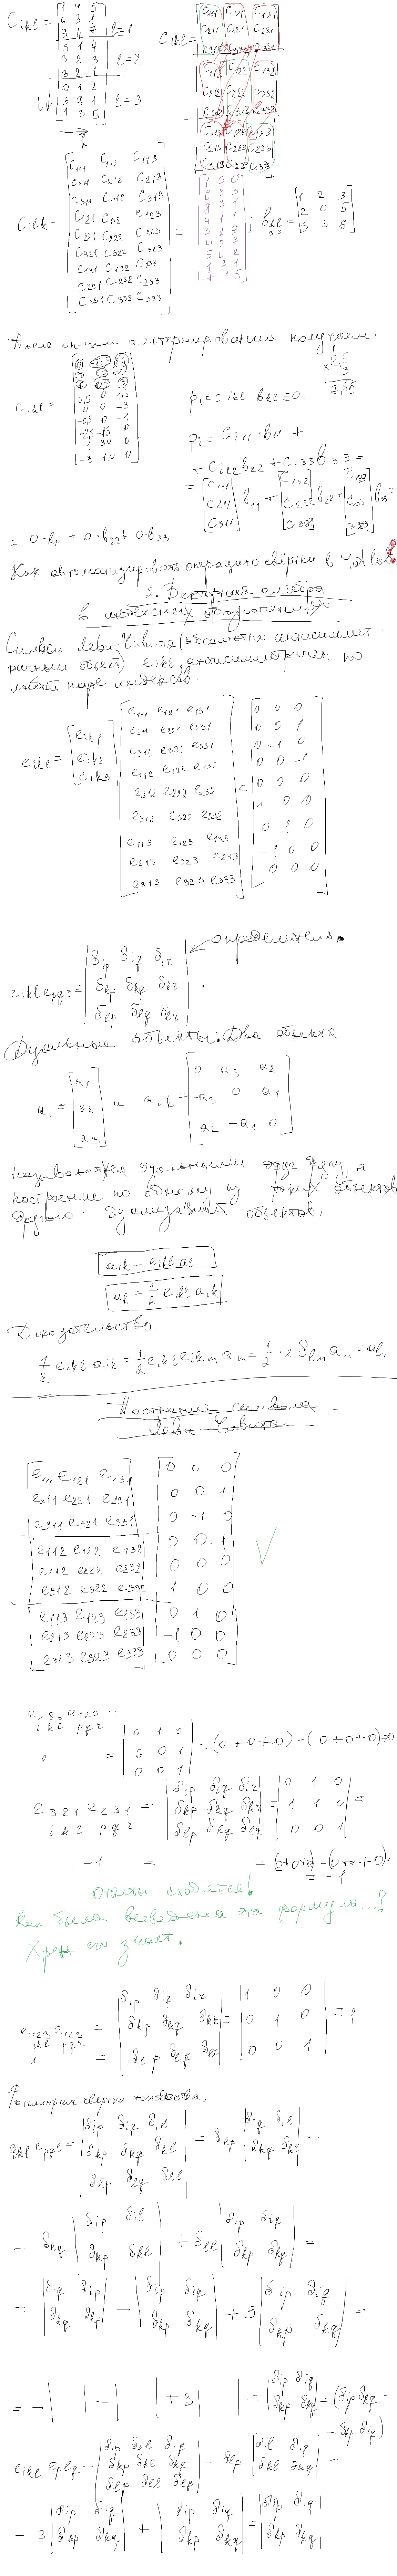 C_ikl = [1 4 5
6 3 1
9 4 7] l=1
[5 1 4
3 2 3
3 2 1] l=2
[0 1 2
3 9 1
1 3 5] l=3
i↓
→ k
C_ikl = [C111 C121 C131
C211 C221 C231
C311 C321 C331
C112 C122 C132
C212 C222 C232
C312 C322 C332
C113 C123 C133
C213 C223 C233
C313 C323 C333]
C_ilk = [C111 C112 C113
C211 C212 C213
C311 C312 C313
C121 C122 C123
C221 C222 C223
C321 C322 C323
C131 C132 C133
C231 C232 C233
C331 C332 C333]
= [1 5 0
6 3 3
9 3 1
4 1 1
3 2 9
4 2 3
5 4 2
1 3 1
7 1 5] ; b_kl = [1 2 3
2 0 5
3 5 6]
3 3
После оп-ции альтернирования получаем:
C_ikl = [0 -0,5 2,5
0 0 -1
0 0,5 3
0,5 0 1,5
0 0 -3
-0,5 0 -1
-2,5 -1,5 0
1 3,0 0
-3 1,0 0]
p_i = C_ikl · b_kl = 0.
p_i = C_i11 · b_11 +
+ C_i22 b_22 + C_i33 b_33 =
= [C111
C211
C311] b_11 + [C122
C222
C322] b_22 + [C133
C233
C333] b_33 =
= 0·b_11 + 0·b_22 + 0·b_33
Как автоматизировать операцию свёртки в Matlab?
2. Векторная алгебра
в индексных обозначениях
Символ Леви-Чивита (абсолютно антисиммет-
ричный объект) e_ikl антисимметричен по
любой паре индексов.
e_ikl = [e_ik1
e_ik2
e_ik3] [e111 e121 e131
e211 e221 e231
e311 e321 e331
e112 e122 e132
e212 e222 e232
e312 e322 e332
e113 e123 e133
e213 e223 e233
e313 e323 e333] = [0 0 0
0 0 1
0 -1 0
0 0 -1
0 0 0
1 0 0
0 1 0
-1 0 0
0 0 0]
определитель.
e_ikl e_pqr = |δip δiq δir
δkp δkq δkr
δlp δlq δlr| .
Дуальные объекты: Два объекта
a_i = [a1
a2
a3] и a_ik = [0 a3 -a2
-a3 0 a1
a2 -a1 0]
называются дуальными друг другу, а
построение по одному из таких объектов
другого — дуализацией объектов.
a_ik = e_ikl a_l.
a_l = 1/2 e_ikl a_ik
Доказательство:
1/2 e_ikl a_ik = 1/2 e_ikl e_ikm a_m = 1/2 · 2 δ_lm a_m = a_l.
Построение символа
Леви-Чивита
[e111 e121 e131
e211 e221 e231
e311 e321 e331
e112 e122 e132
e212 e222 e232
e312 e322 e332
e113 e123 e133
e213 e223 e233
e313 e323 e333] [0 0 0
0 0 1
0 -1 0
0 0 -1
0 0 0
1 0 0
0 1 0
-1 0 0
0 0 0] V
e233 e123 =
ikl pqr
0 = |0 1 0
0 0 1
0 0 1| = (0+0+0)-(0+0+0)=0
e321 e231 = |δip δiq δir
δkp δkq δkr
δlp δlq δlr| = |0 1 0
1 1 0
0 0 1| =
ikl pqr
-1 = = (0+0+0)-(0+1+0)=
= -1
Ответы сходятся!
Как была выведена эта формула...?
Хрен его знает.
e123 e123 = |δip δiq δir
δkp δkq δkr
δlp δlq δlr| = |1 0 0
0 1 0
0 0 1| = 1
ikl pqr
1 =
Рассмотрим свёртки тождества.
e_ikl e_pql = |δip δiq δil
δkp δkq δkl
δlp δlq δll| = δlp |δiq δil
δkq δkl| -
- δlq |δip δil
δkp δkl| + δll |δip δiq
δkp δkq| =
= |δiq δip
δkq δkp| - |δip δiq
δkp δkq| + 3 |δip δiq
δkp δkq| =
= -| | - | | + 3 | | = |δip δiq
δkp δkq| = (δip δkq -
- δkp δiq)
e_ikl e_plq = |δip δil δiq
δkp δkl δkq
δlp δll δlq| = δlp |δil δiq
δkl δkq| -
- 3 |δip δiq
δkp δkq| + |δip δiq
δkp δkq| = |δip δiq
δkp δkq|